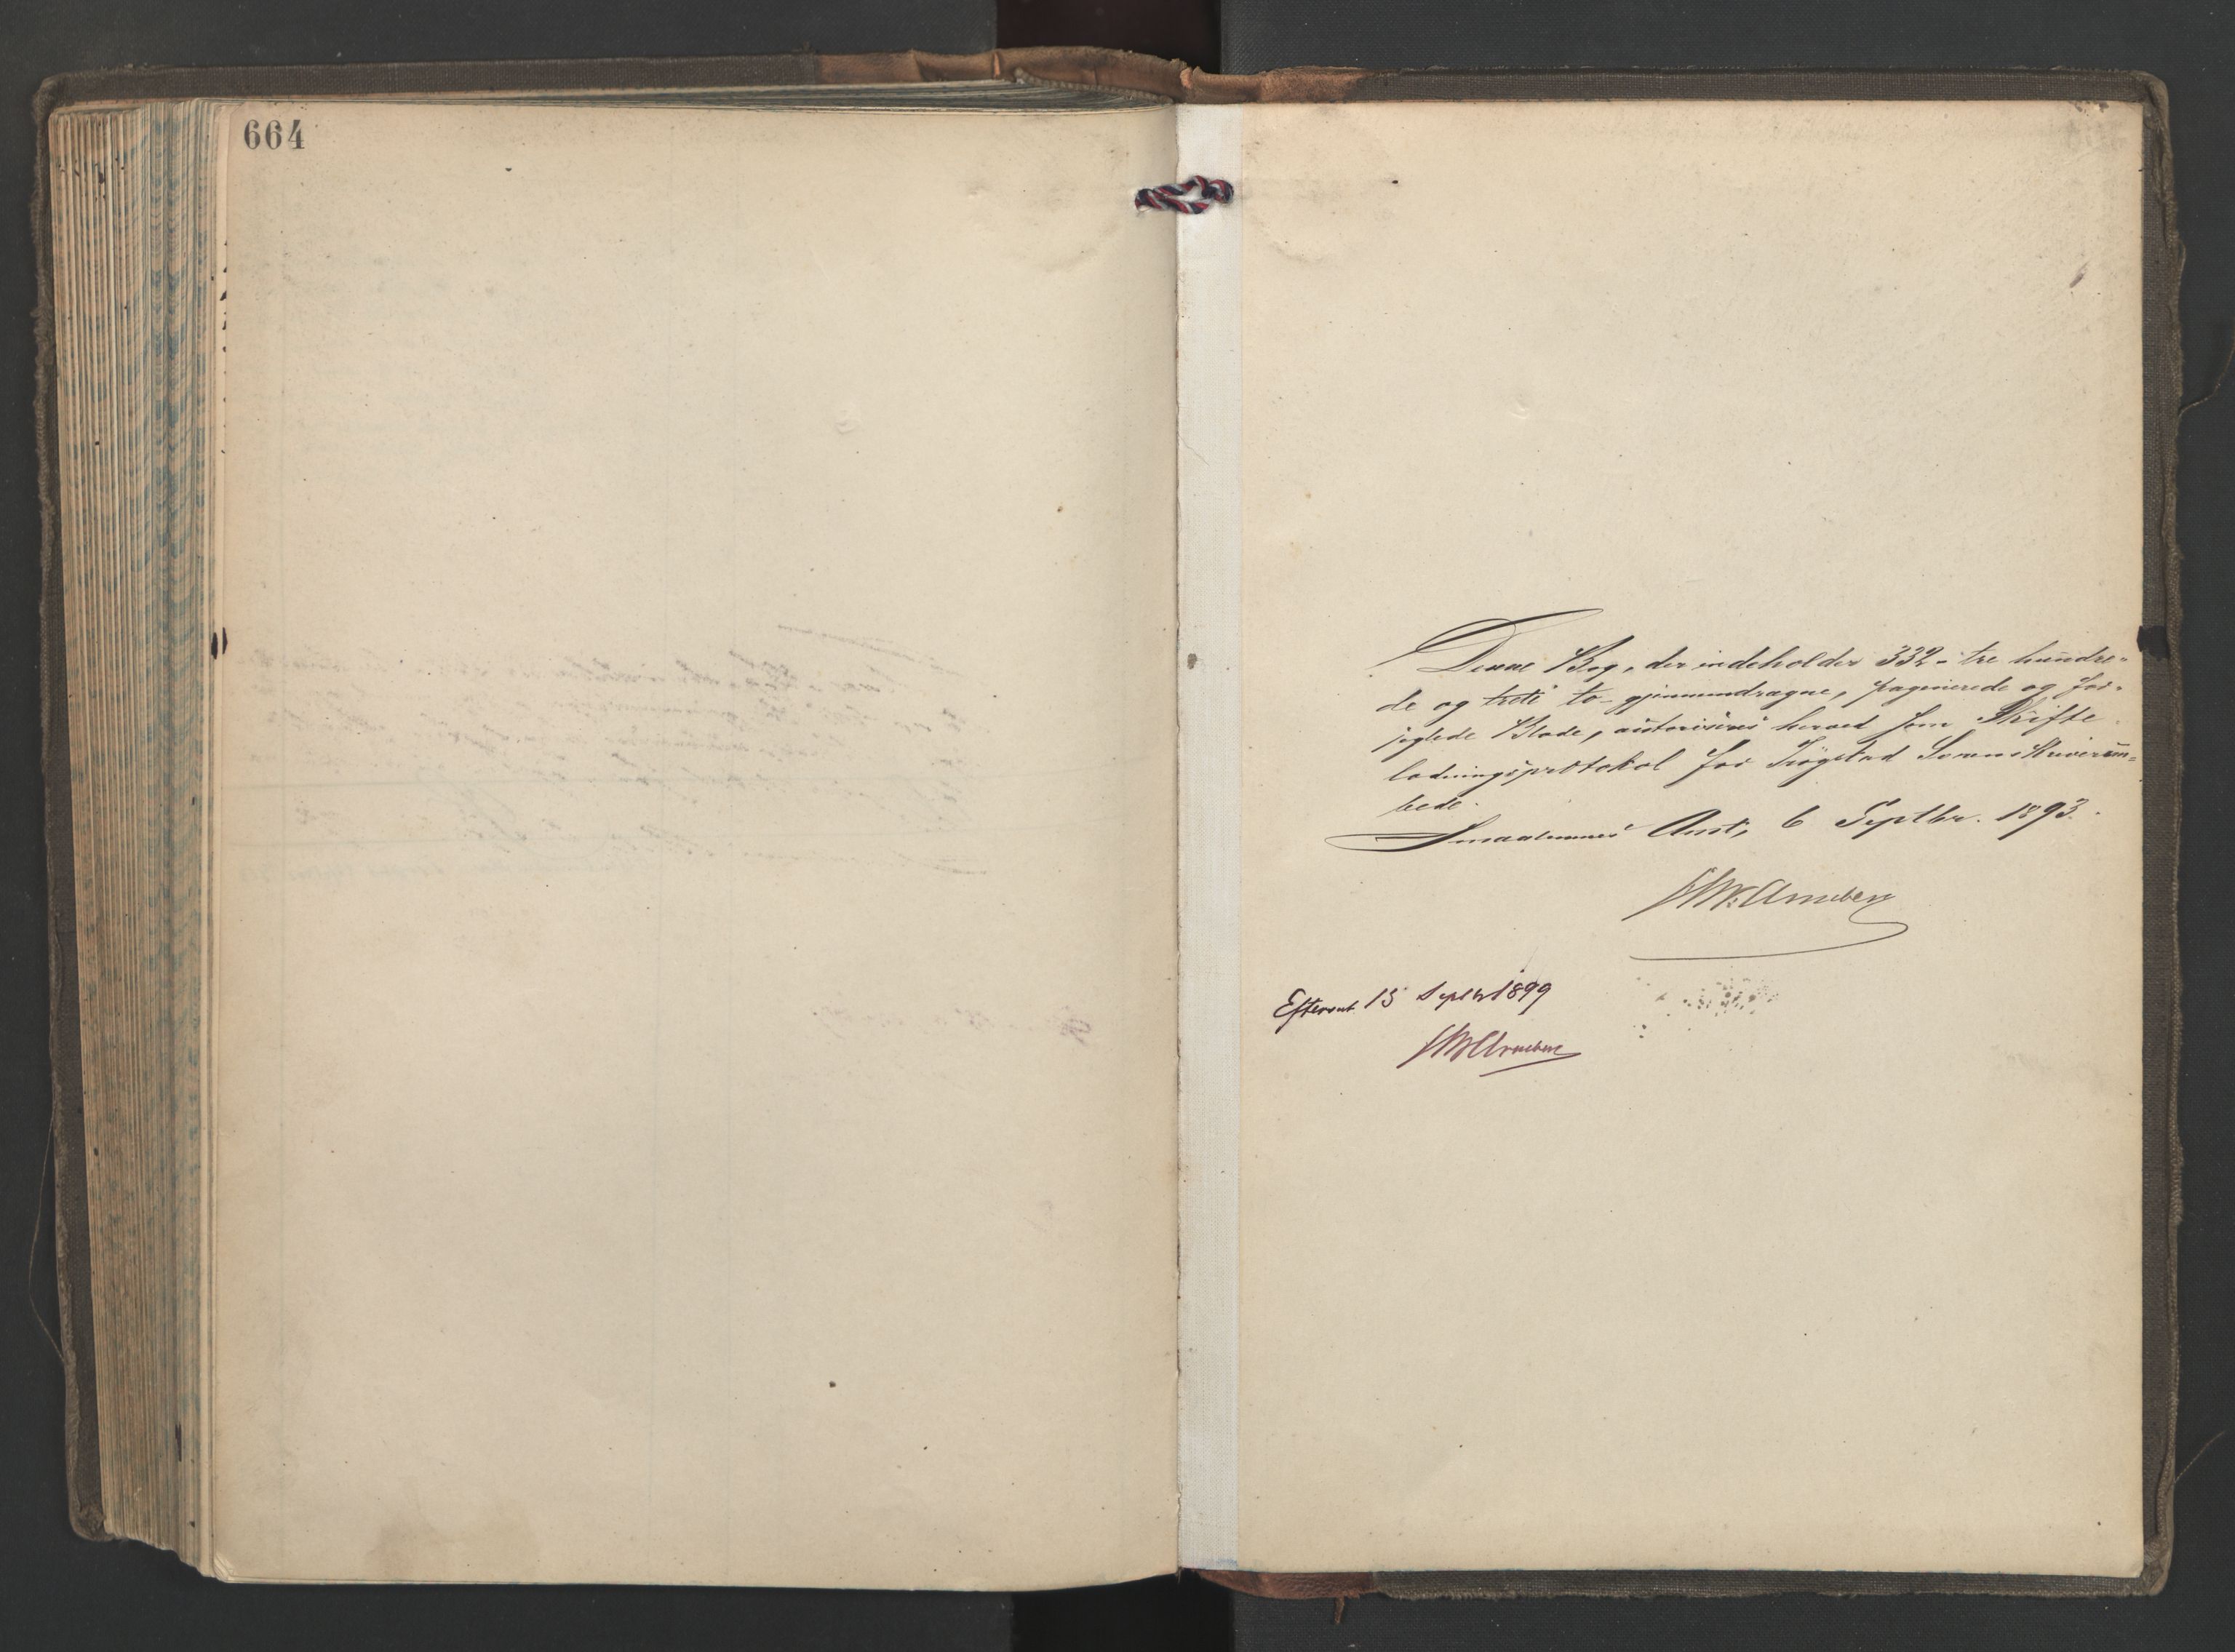 664
Denne Bog, der indeholder 332 - tre hundre-
de og treti to - gjennemdragne, paginerede og for-
seglede Blade, autoriseres herved som Skifte-
lodningsprotokol for Trøgstad Sorenskriverem-
bede.
Smaalenenes Amt, 6 Septbr. 1893.
Arneberg
Efterset 15 Septbr 1899
Arneberg